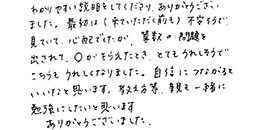 わかりやすい説明をしてくださり、ありがとうござい
ました。最初は(来ていただく前も)不安そうで、
見ていて、心配でしたが、算数の問題を
出されて、〇がもらえたとき、とてもうれしそうで
こちらもうれしくなりました。自信につながると
いいなと思います。教え方等、親も一緒に
勉強にしたいと思います
ありがとうございました。